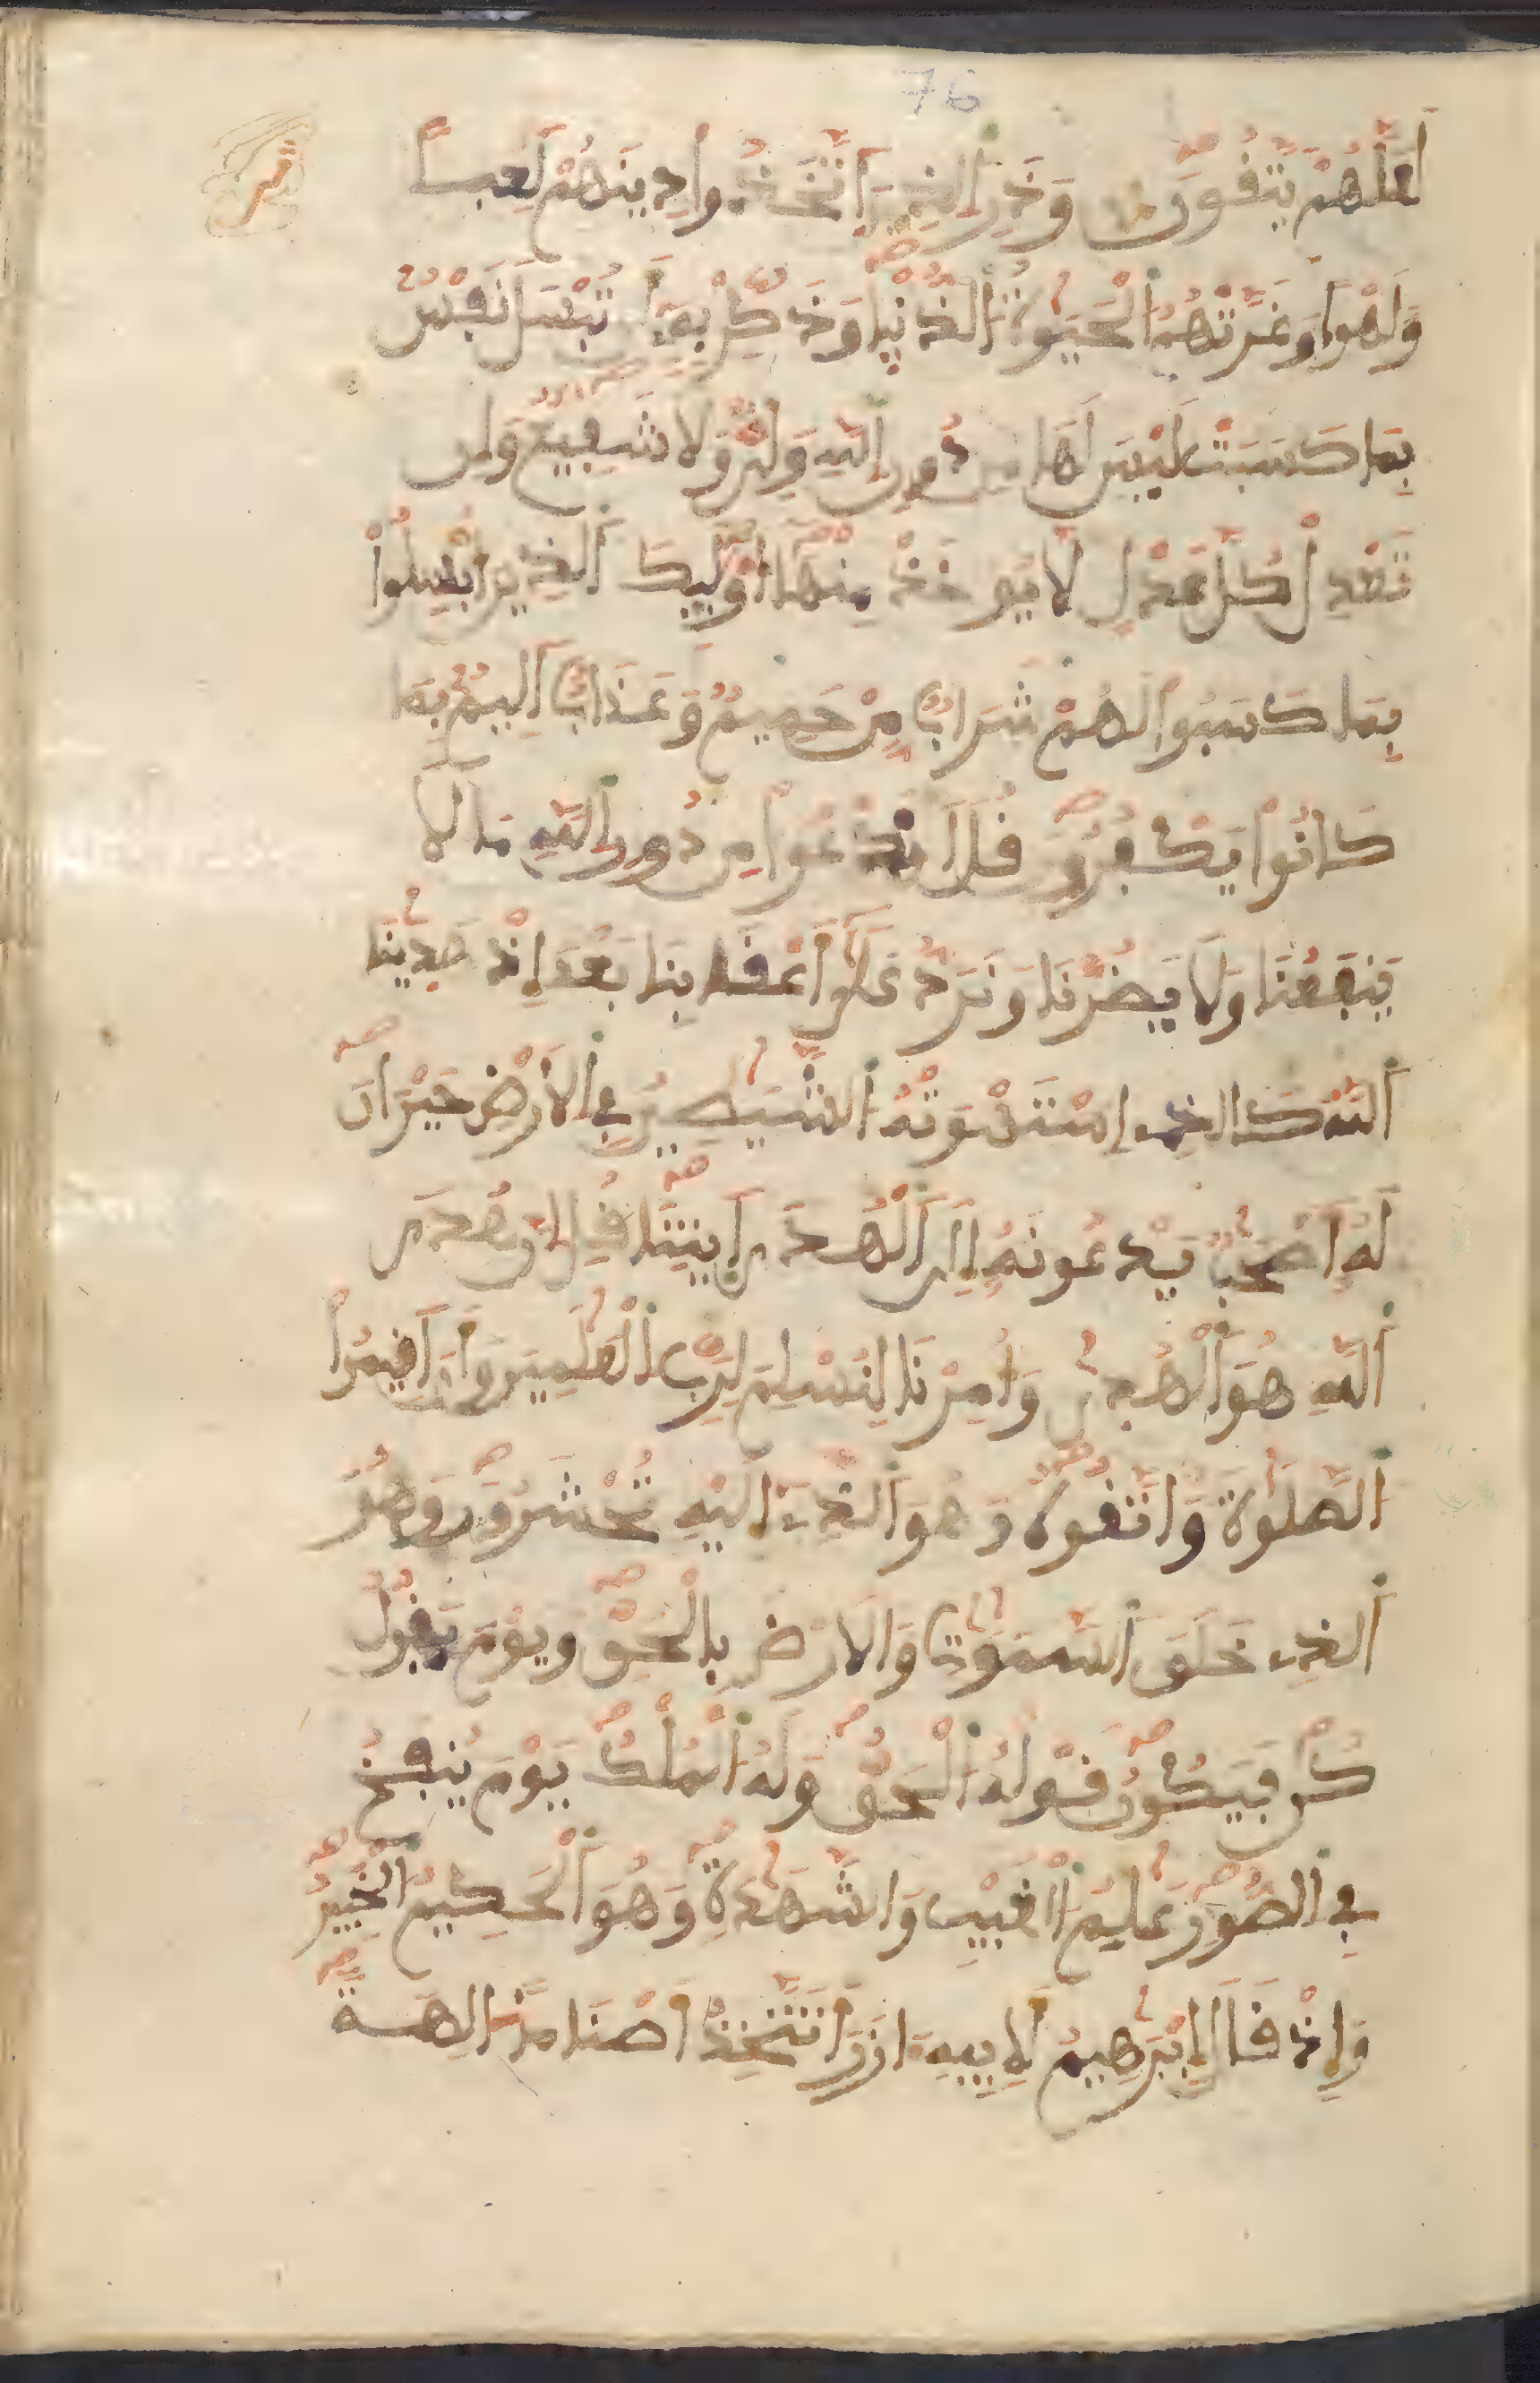 76
لَعَلَّهُمْ يَتَّفُونَ وَذَرِ الذِينَ اَتَّخَذُواْ دِينَهُمْ لَعِباً
ثمن
وَلَهْواً وَغَرَّتْهُمُ الْحَيَوٰةُ الدُّنْيا وَذَكِّرْ بِهِۦٓ أَن تُبْسَلَ نَفْسٌ
بِمَا كَسَبَتْ لَيْسَ لَهَا مِن دُونِ اِللَّهِ وَلِيٌّ وَلَا شَفِيعٌ وَإِن
تَعْدِلْ كُلَّ عَدْلٍ لَّا يُوخَذْ مِنْهَا أُوْلَٰٓئِكَ اَلذِينَ أُبْسِلُواْ
بِمَا كَسَبُواْ لَهُمْ شَرَابٌ مِّنْ حَمِيمٍ وَعَذَابٌ اَلِيمٌ بِمَا
كَانُواْ يَكْفُرُونَ قُلَ اَنَدْعُواْ مِن دُونِ اِللَّهِ مَا لَا
يَنفَعُنَا وَلَا يَضُرُّنَا وَنُرَدُّ عَلَىٰٓ أَعْقَابِنَا بَعْدَ إِذْ هَدَيٰنَا
اَللَّهُ كَالذِے اِسْتَهْوَتْهُ اُلشَّيَٰطِينُ فِي اِلْأَرْضِ حَيْرَانَ
لَهُۥٓ أَصْحَٰبٌ يَدْعُونَهُۥٓ إِلَى اَلْهُدَى اَيتِنَا قُلِ اِنَّ هُدَى
اَللَّهِ هُوَ اَلْهُدَىٰ وَأُمِرْنَا لِنُسْلِمَ لِرَبِّ اِلْعَٰلَمِينَ وَأَنَ اَقِيمُواْ
اُلصَّلَوٰةَ وَاتَّقُوهُ وَهُوَ اَلذِےٓ إِلَيْهِ تُحْشَرُونَ وَهُوَ
اَلذِے خَلَقَ اَلسَّمَٰوَٰتِ وَالَارْضَ بِالْحَقِّ وَيَوْمَ يَقُولُ
كُن فَيَكُونُ قَوْلُهُ اُلْحَقُّ وَلَهُ اُلْمُلْكُ يَوْمَ يُنفَخُ
فِي اِلصُّورِ عَٰلِمُ اُلْغَيْبِ وَالشَّهَٰدَةِ وَهُوَ اَلْحَكِيمُ الْخَبِيرُ
وَإِذْ قَالَ إِبْرَٰهِيمُ لِأَبِيهِ ءَازَرَ أَتَتَّخِذُ أَصْنَاماً اٰلِهَةً